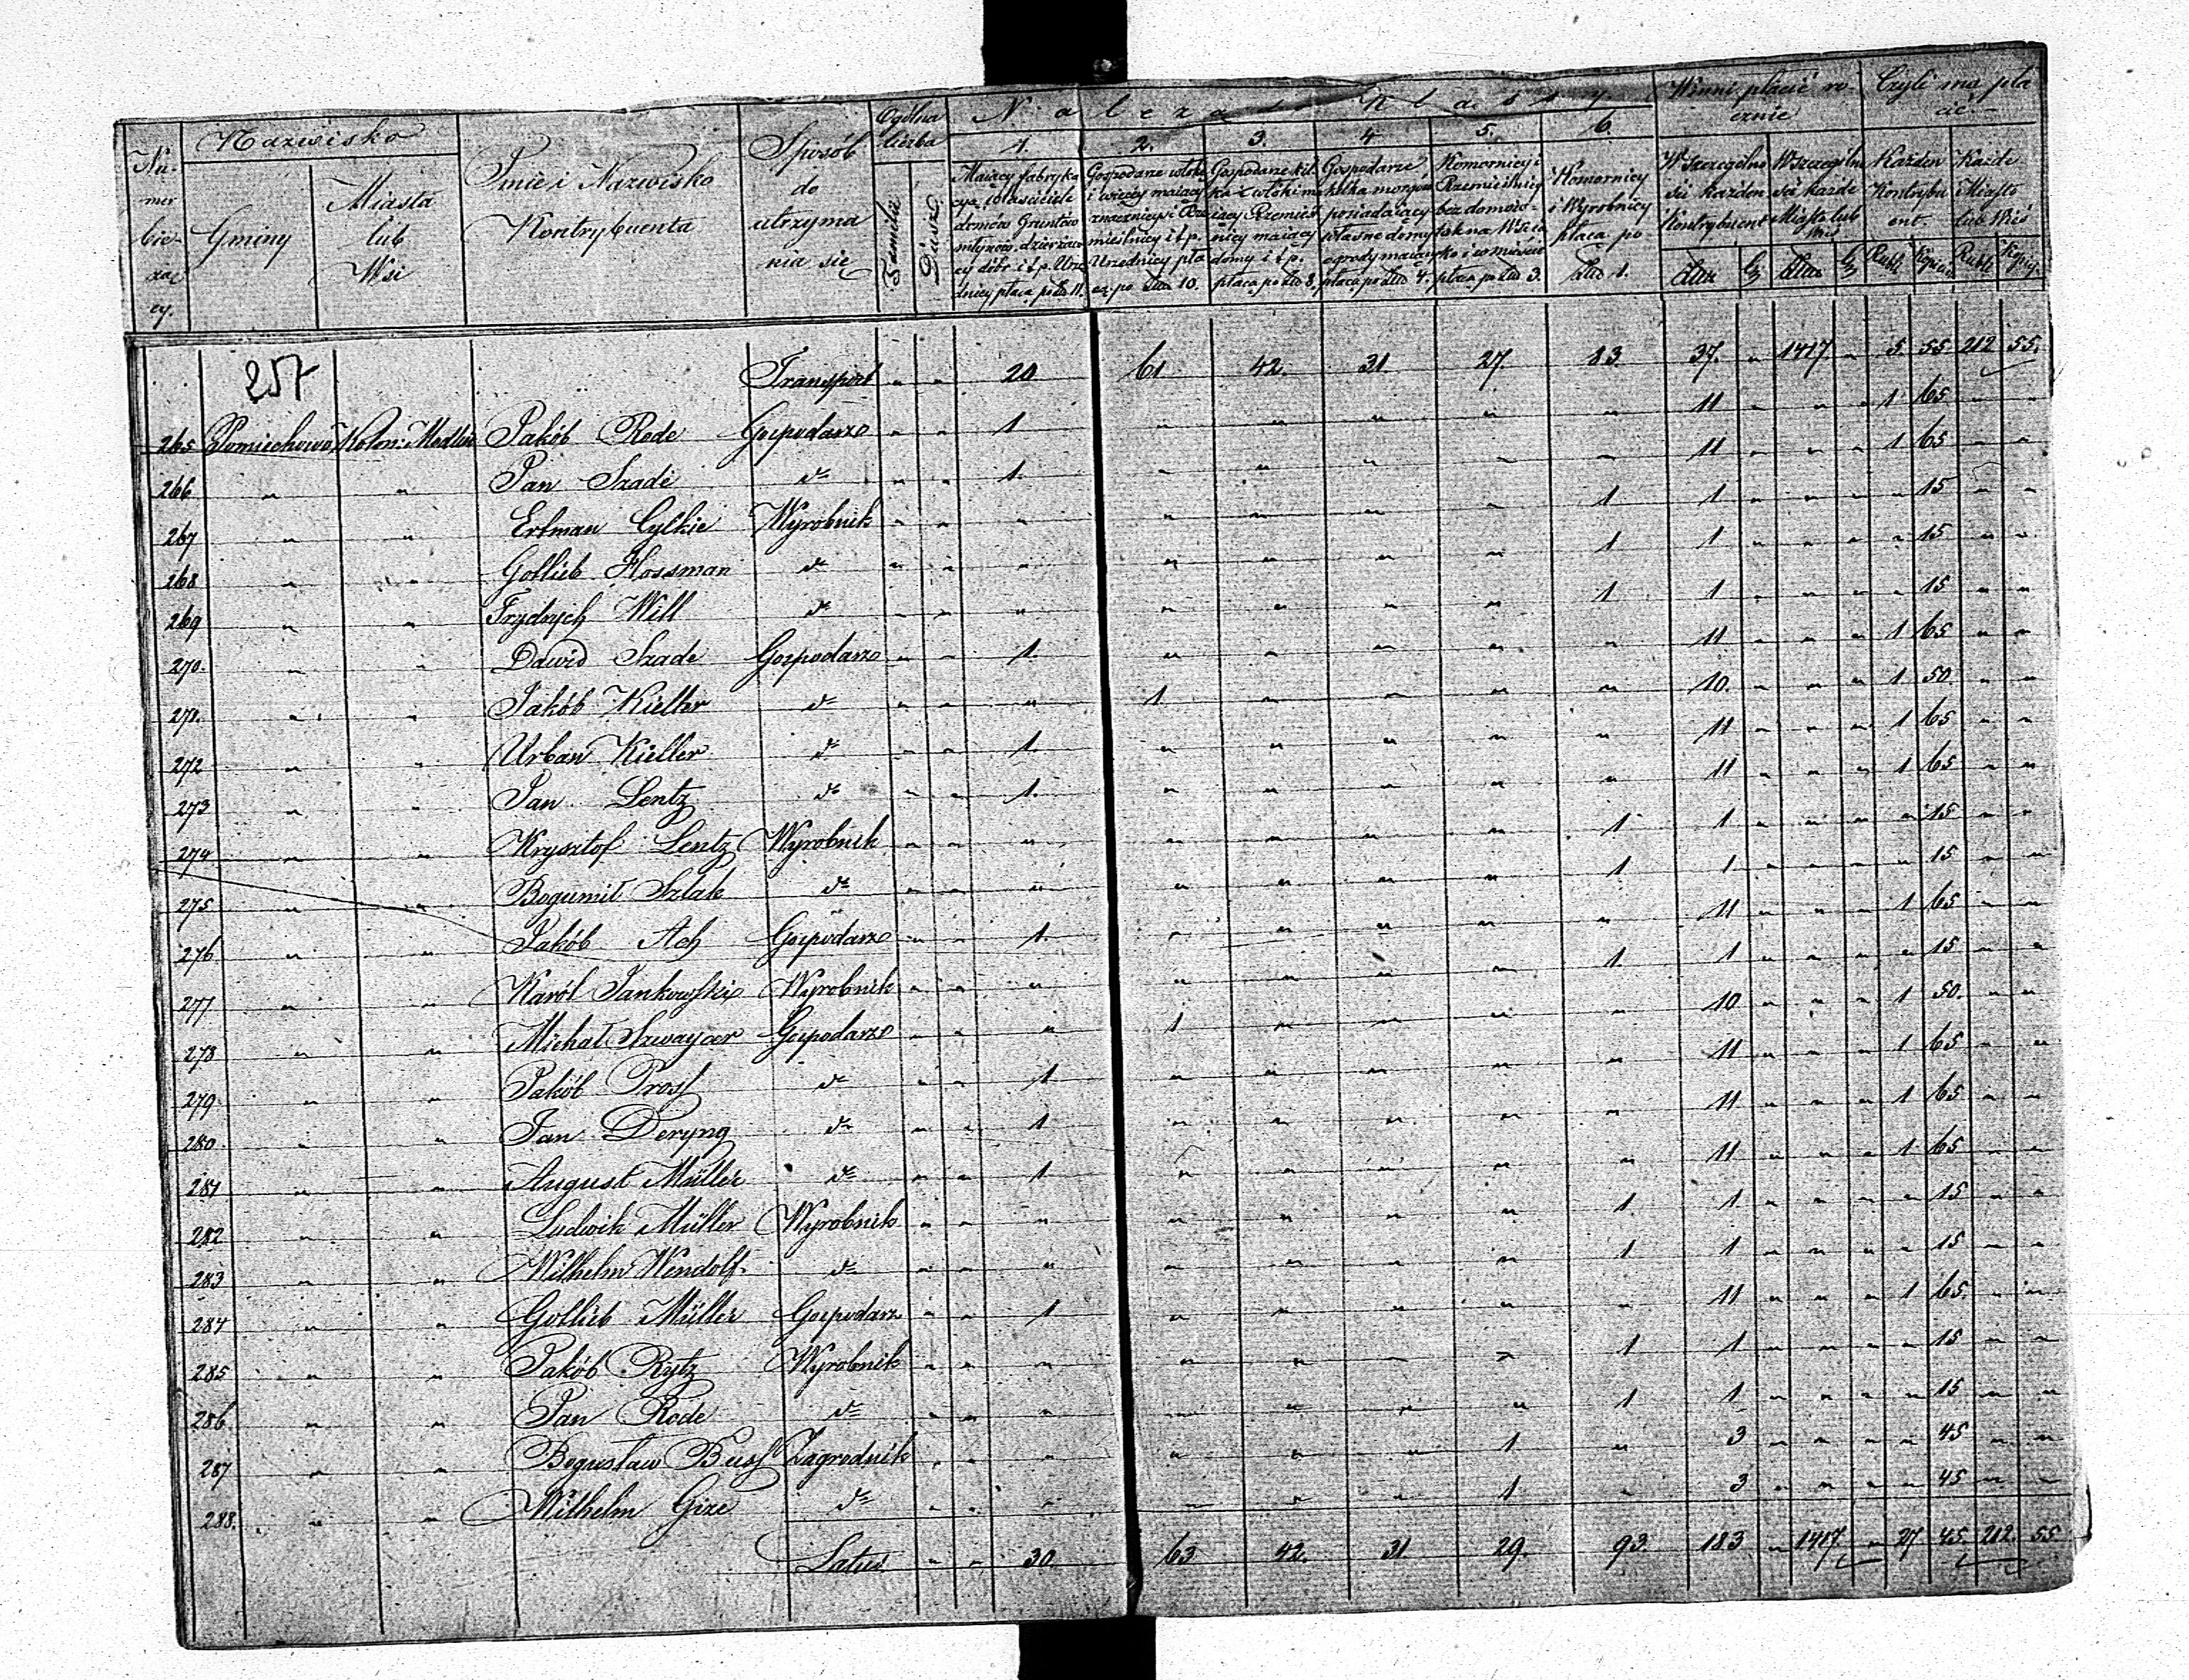 Numer bieżący. Nazwisko Gminy Miasta lub Wsi Imie i Nazwisko Kontrybuenta Sposób do utrzymania się Ogólna liczba Familii Dusz Należą do Klassy
1. Maiący fabryka
2. Gospodarze
3. Gospodarze
4. Gospodarze kilka morgów posiadaiący własne domy ogrody płacą po Złp 4.
5. Komornicy i Rzemieślnicy bez domów płacą po Złp 3.
6. Komornicy i Wyrobnicy płacą po Złp 1.
Winni płacić rocznie W Szczególności każden Kontrybuent W Szczególności każde Miasto lub Wieś Złp Gr Złp Gr
Czyli ma płacić Każden Kontrybuent. Każde Miasto lub Wieś Rubli Kopiej. Rubli Kopiej.
257 Transport „ „ 20 61 42. 31 27. 83 37. „ 1417. „ 5. 55 212 55.
265 Pomiechowo Kolon: Modlin Jakób Rode Gospodarz „ „ 1 „ „ „ „ „ 11 „ „ „ 1 65 „ „
266 „ „ Jan Szade do „ „ 1. „ „ „ „ „ 11 „ „ „ 1 65 „ „
267 „ „ Ertman Cylkie Wyrobnik „ „ „ „ „ „ „ 1 1 „ „ „ „ 15 „ „
268 „ „ Gotlieb Hossman do „ „ „ „ „ „ „ 1 1 „ „ „ „ 15 „ „
269 „ „ Frydrych Will do „ „ „ „ „ „ „ 1 1 „ „ „ „ 15 „ „
270. „ „ Dawid Szade Gospodarz „ „ 1. „ „ „ „ „ 11 „ „ „ 1 65 „ „
271. „ „ Jakób Kieller do „ „ „ 1 „ „ „ „ 10. „ „ „ 1 50. „ „
272 „ „ Urban Kieller do „ „ 1. „ „ „ „ „ 11 „ „ „ 1 65 „ „
273 „ „ Jan Lentz do „ „ 1. „ „ „ „ „ 11 „ „ „ 1 65 „ „
274 „ „ Krysztof Lentz Wyrobnik „ „ „ „ „ „ „ 1 1 „ „ „ „ 15 „ „
275 „ „ Bogumił Szlak do „ „ „ „ „ „ „ 1 1 „ „ „ „ 15 „ „
276 „ „ Jakób Ach Gospodarz „ „ 1. „ „ „ „ „ 11 „ „ „ 1 65 „ „
277 „ „ Karól Jankowski Wyrobnik „ „ „ „ „ „ „ 1. 1 „ „ „ „ 15 „ „
278 „ „ Michał Szwaycer Gospodarz „ „ „ 1 „ „ „ „ 10 „ „ „ 1 50. „ „
279. „ „ Jakób Pross do „ „ 1 „ „ „ „ „ 11 „ „ „ 1 65 „ „
280. „ „ Jan Deryng do „ „ 1 „ „ „ „ „ 11 „ „ „ 1 65 „ „
281 „ „ August Müller do „ „ 1 „ „ „ „ „ 11 „ „ „ 1 65 „ „
282 „ „ Ludwik Müller Wyrobnik „ „ „ „ „ „ „ 1 1 „ „ „ „ 15 „ „
283 „ „ Wilhelm Wendolf do „ „ „ „ „ „ „ 1 1 „ „ „ „ 15 „ „
284 „ „ Gotlieb Müller Gospodarz „ „ 1 „ „ „ „ „ 11 „ „ „ 1 65. „ „
285 „ „ Jakób Rytz Wyrobnik „ „ „ „ „ „ „ 1 1 „ „ „ „ 15 „ „
286 „ „ Jan Rode do „ „ „ „ „ „ „ 1 1 „ „ „ „ 15 „ „
287 „ „ Bogusław Buss Zagrodnik „ „ „ „ „ „ 1 „ 3 „ „ „ „ 45 „ „
288. „ „ Wilhelm Gize do „ „ „ „ „ „ 1 „ 3 „ „ „ „ 45 „ „
Latus „ „ 30 63 42. 31 29. 93. 183 „ 1417. „ 27 45. 212. 55